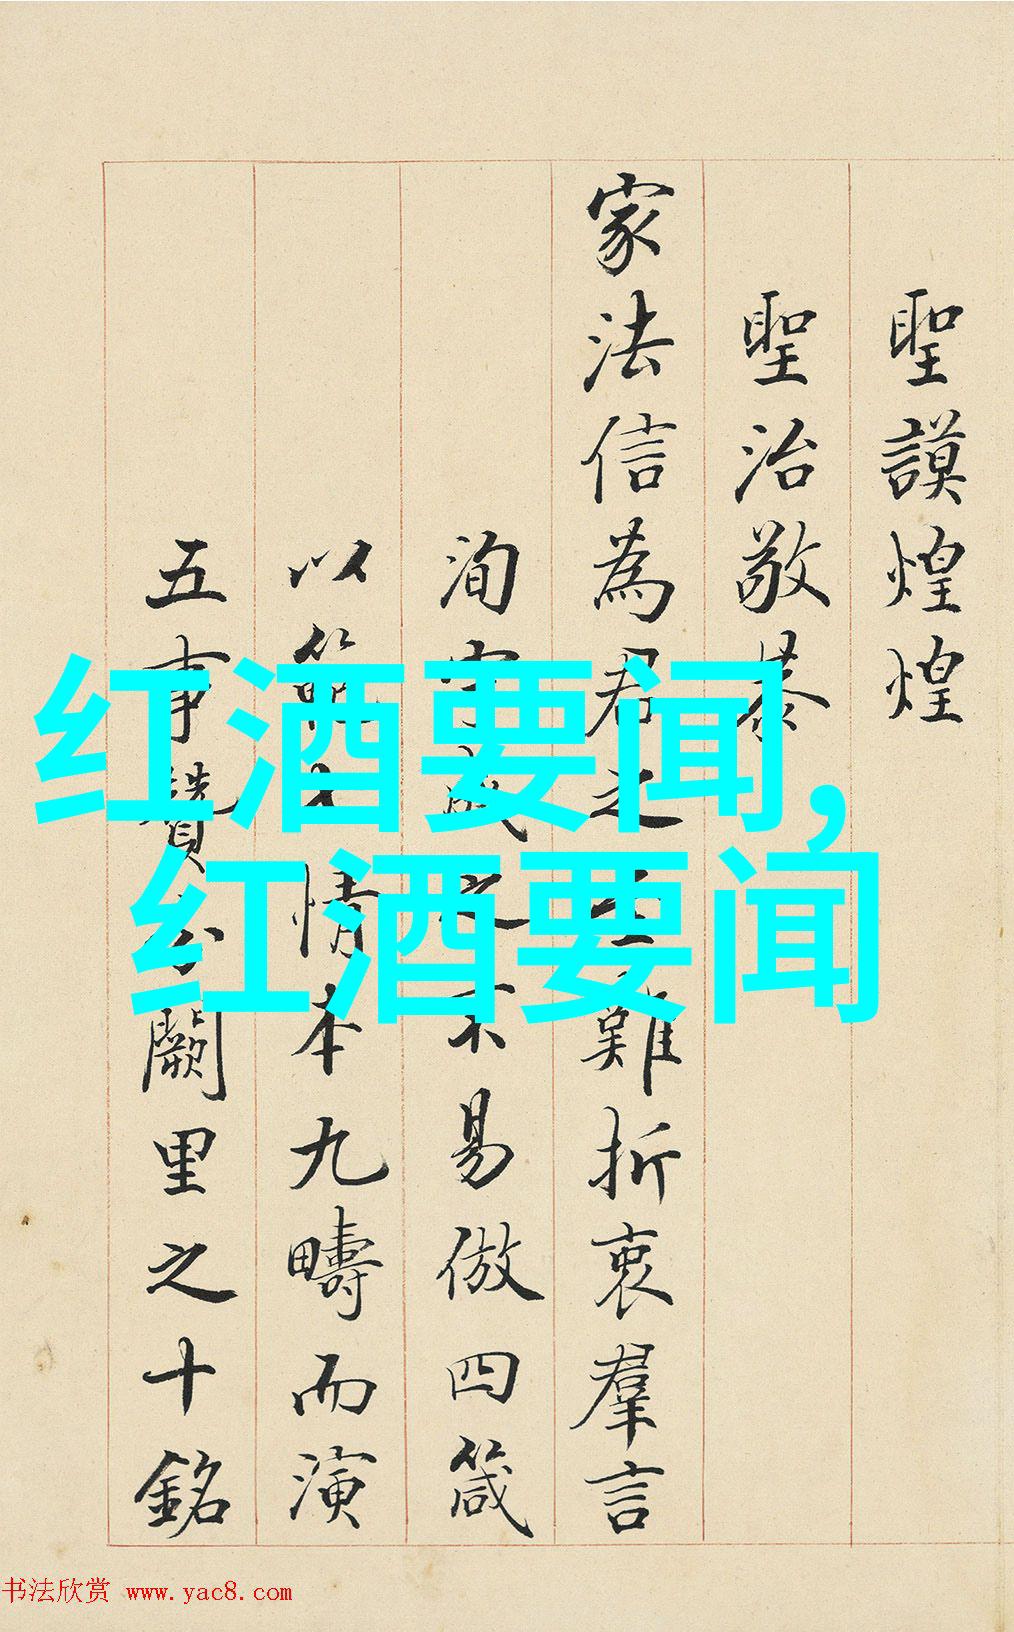 聖謨煌煌
聖治敬恭
家法信為君之難折衷羣言
洵守成之不易倣四箴
以範情本九疇而演
五事贊分闕里之十銘
红酒要闻,
红酒要闻
书法欣赏 www.yac8.com